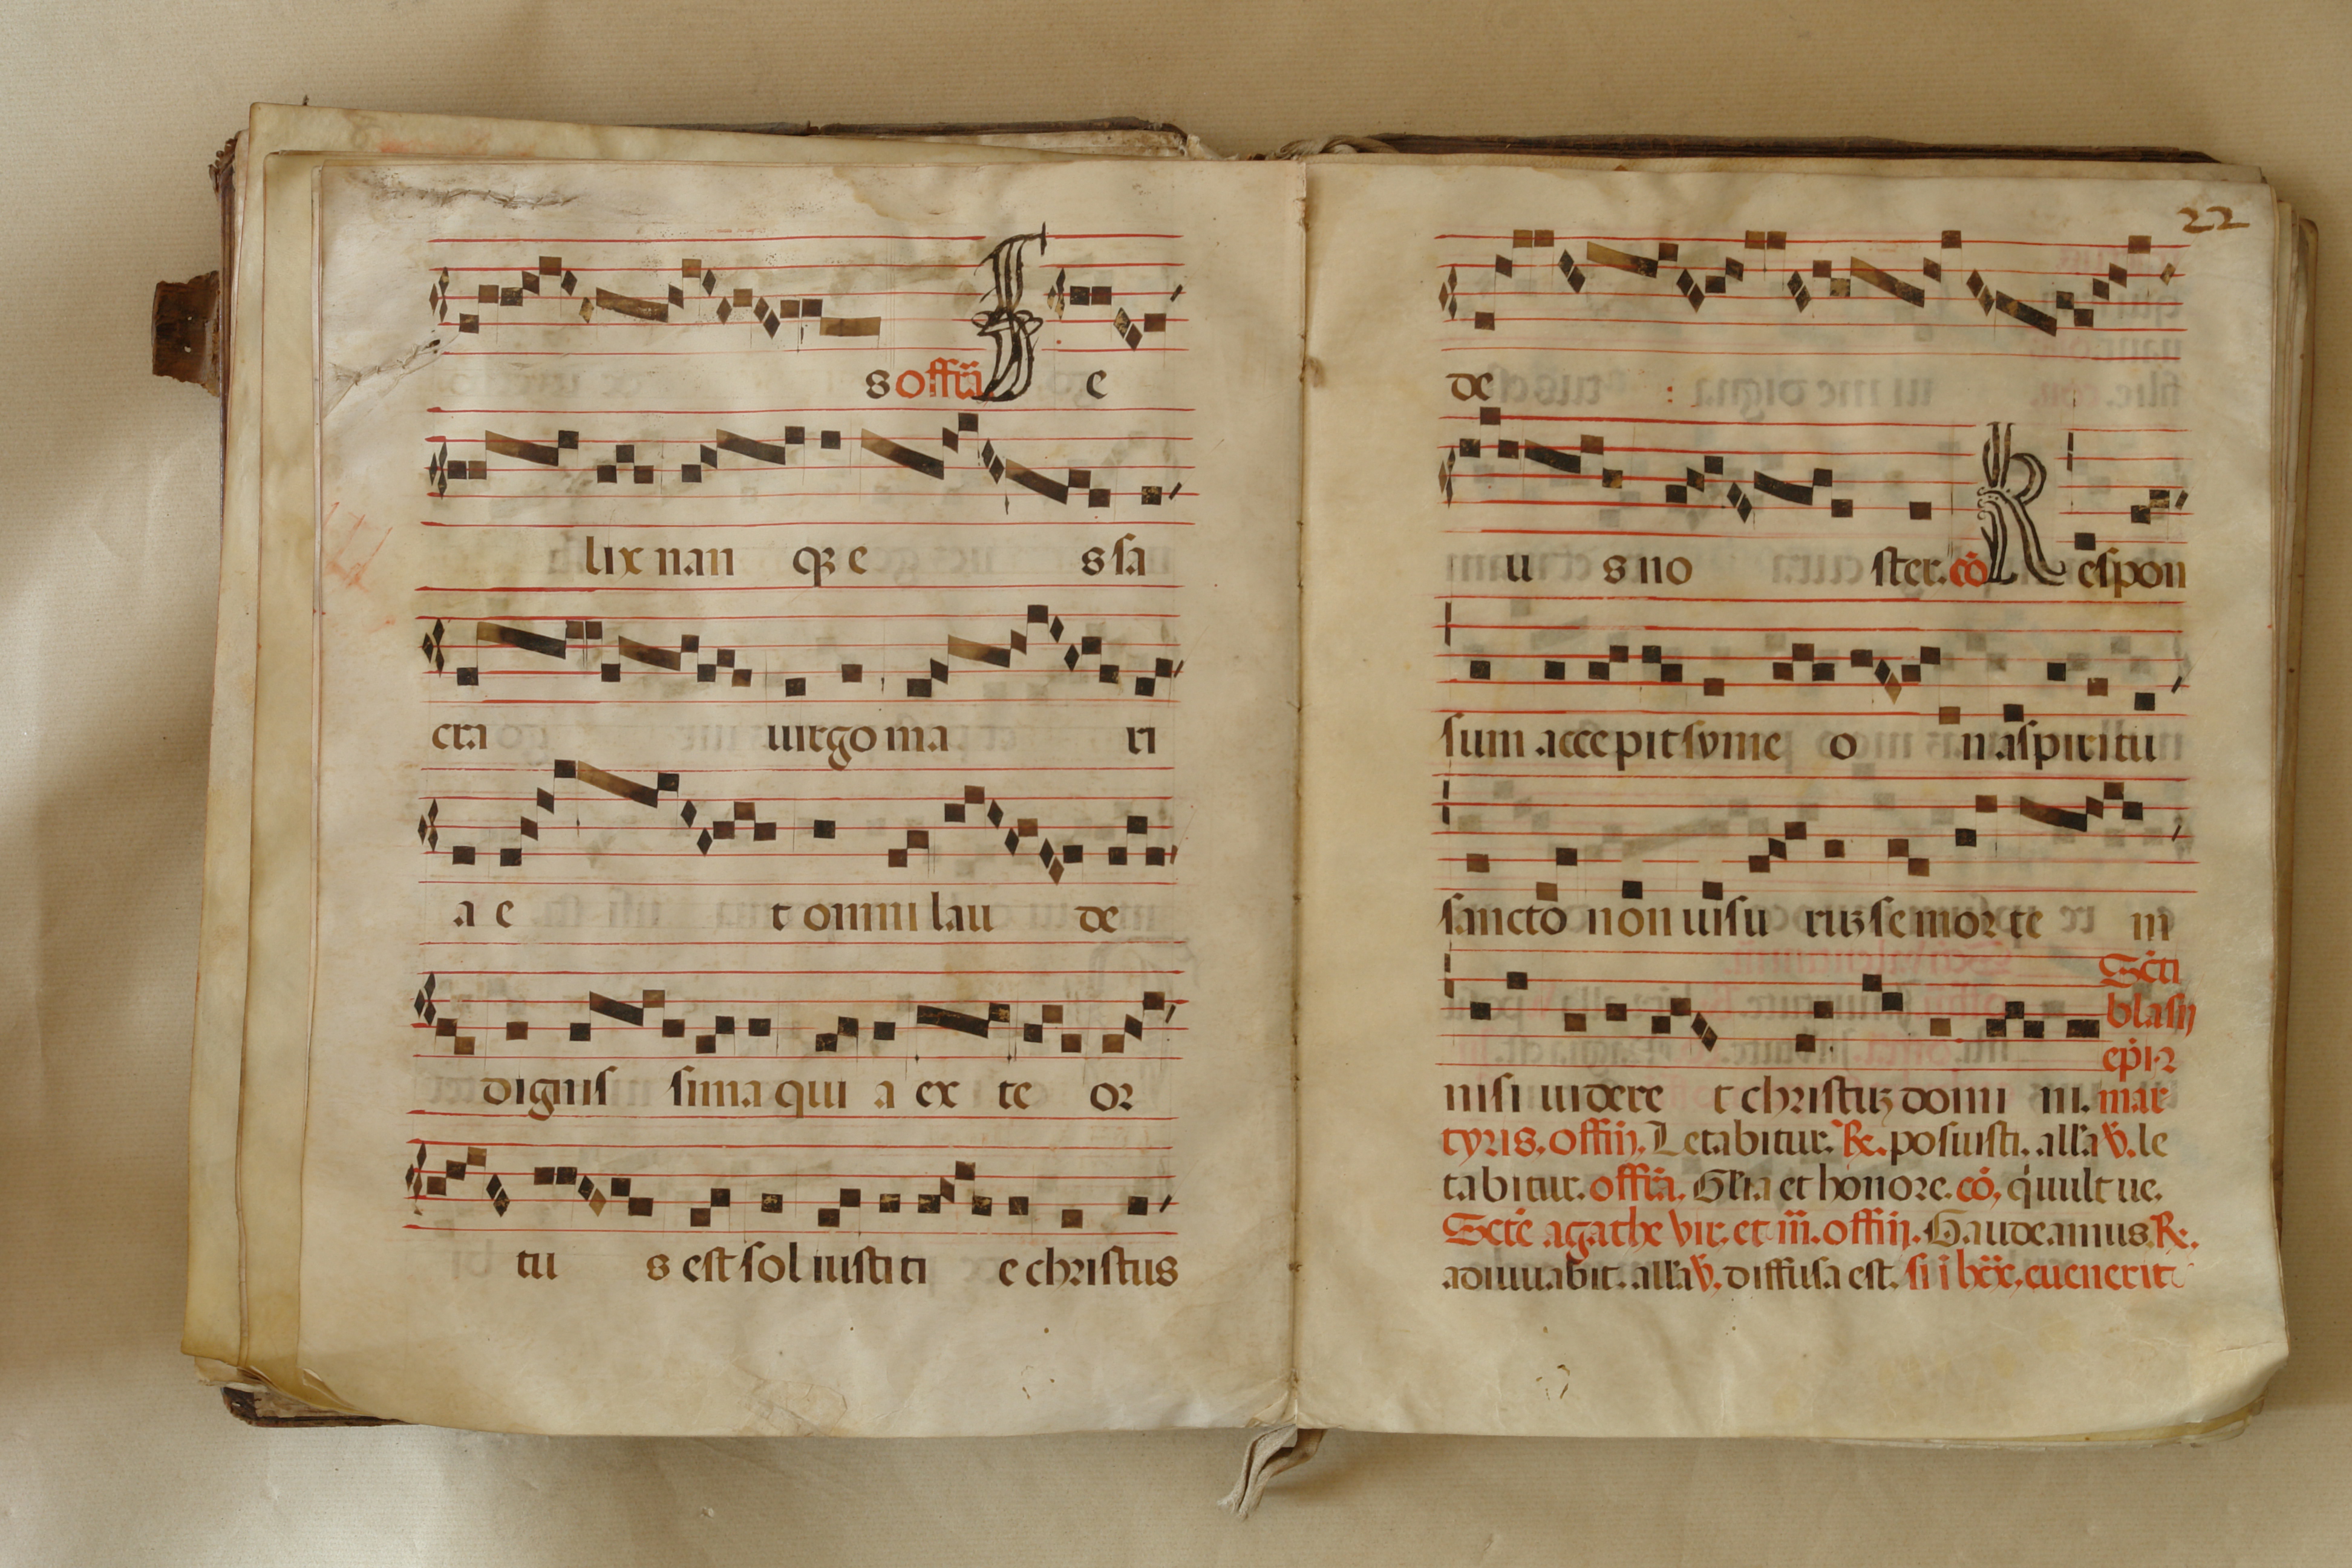 s offii F e
lix nan q3 e s sa
cra uirgo ma ri
a e t omni lau de
dignis sima qui a ex te or
tu s est sol iusti ti e christus
22
de :
u s no ster. cō R espon
sum accepit syme o n a spiritu
sancto non uisu ru3 se mor te m
Scti
blasij
epi 2
nisi uidere t christu3 domi ni. mar
tyris. offiij. Letabitur. R. posiusti. all'a V. le
tabitur. offia. Gl'ia et honore. cō. qi uult ue.
Scte agathe vir. et m̄. offiij. Gaudeamus. R.
adiuuabit. all'a V. diffusa est. si i lxx. euenerit